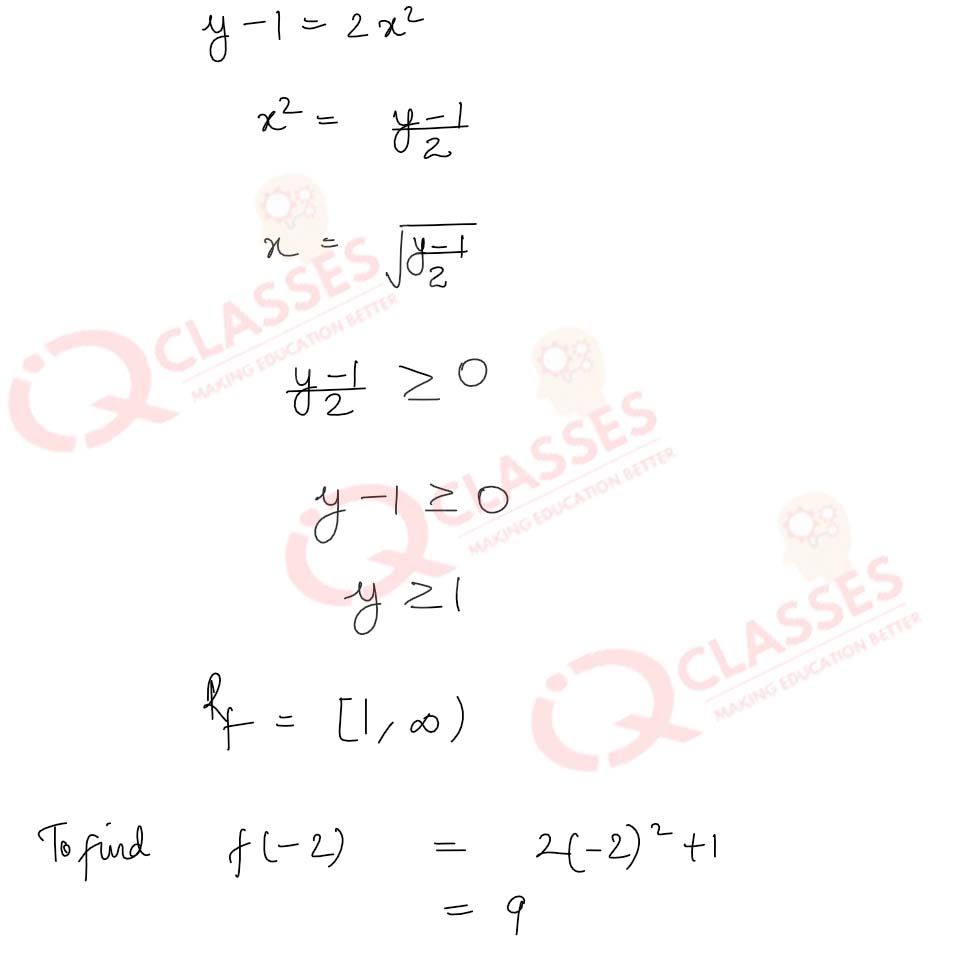 y - 1 = 2x²
x² = (y-1)/2
x = √((y-1)/2)
(y-1)/2 ≥ 0
y - 1 ≥ 0
y ≥ 1
R_f = [1, ∞)
To find f(-2) = 2(-2)² + 1
= 9
iQ CLASSES
MAKING EDUCATION BETTER
iQ CLASSES
MAKING EDUCATION BETTER
iQ CLASSES
MAKING EDUCATION BETTER